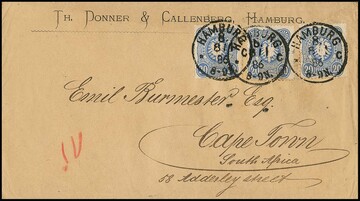 TH. DONNER & CALLENBERG, HAMBURG.
HAMBURG
8
8 1
86
8-9N.
HAMBURG
8
C 1
86
8-9N.
HAMBURG
8
C
86
8-9N.
Emil Burmester Esq.
Cape Town
South Africa
58 Adderley street